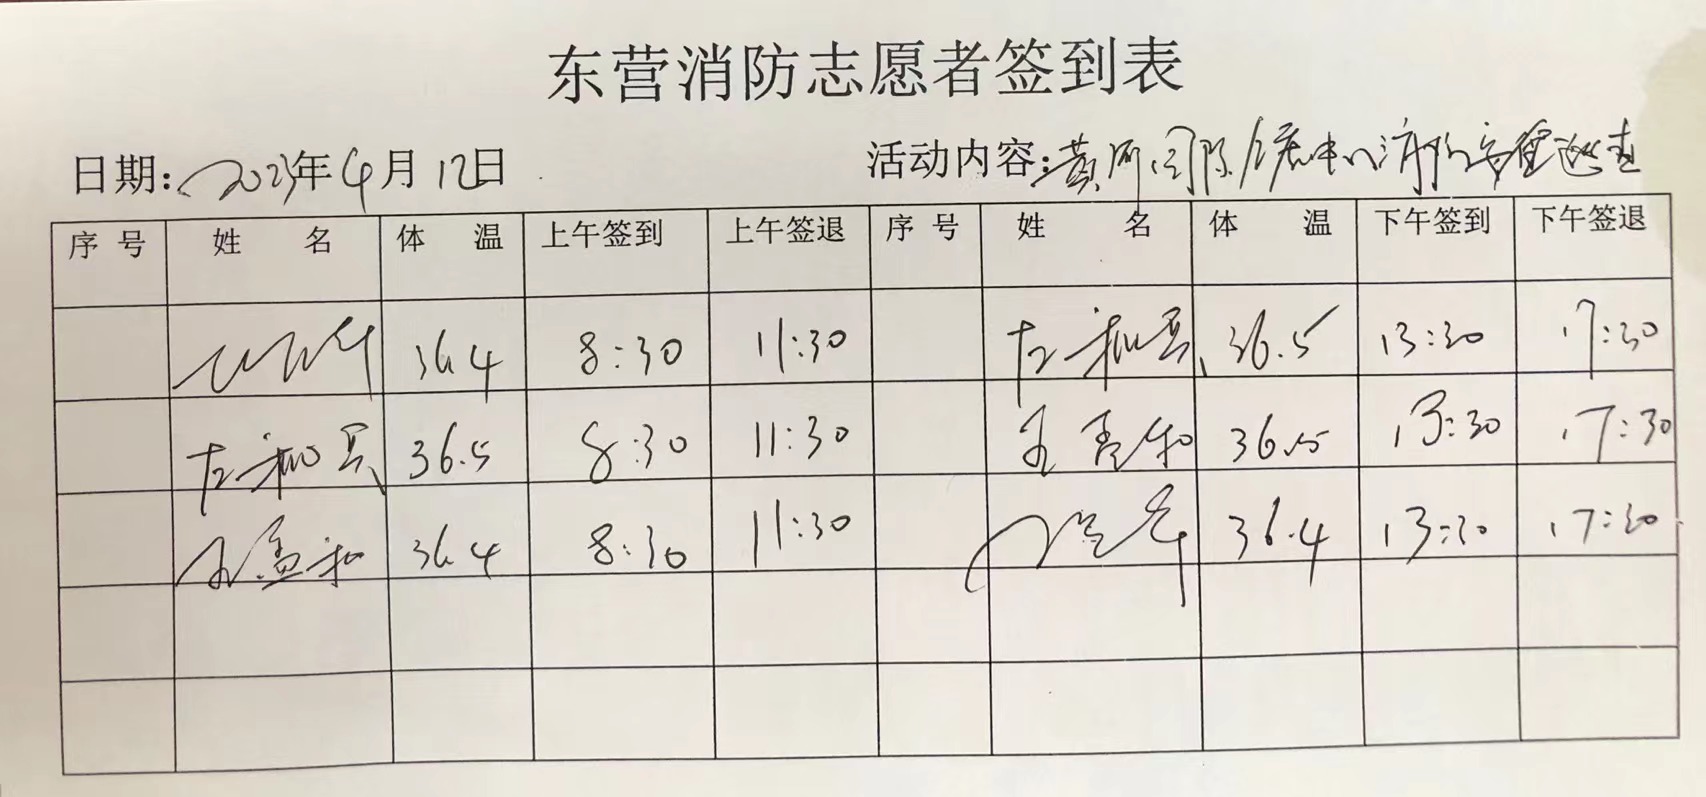 东营消防志愿者签到表
日期: 2023年4月12日 活动内容: 黄河国际会展中心消防安全巡查
序号 姓名 体温 上午签到 上午签退 序号 姓名 体温 下午签到 下午签退
36.4 8:30 11:30 36.5 13:30 17:30
36.5 8:30 11:30 王孟和 36.5 13:30 17:30
王孟和 36.4 8:30 11:30 36.4 13:30 17:30